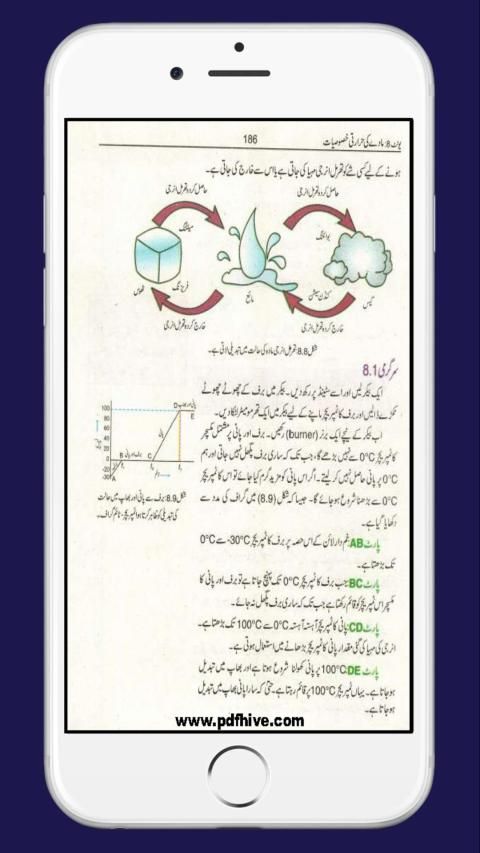 یونٹ 8: مادے کی حرارتی خصوصیات
186
ہونے کے لیے کسی شے کو تھرمل انرجی مہیا کی جاتی ہے یا اس سے خارج کی جاتی ہے۔
حاصل کردہ تھرمل انرجی
حاصل کردہ تھرمل انرجی
میلٹنگ
بوائلنگ
ٹھوس
فریزنگ
مائع
کنڈن سیشن
گیس
خارج کردہ تھرمل انرجی
خارج کردہ تھرمل انرجی
شکل 8.8: تھرمل انرجی مادہ کی حالت میں تبدیلی لاتی ہے۔
سرگرمی 8.1
ایک بیکر لیں اور اسے سٹینڈ پر رکھ دیں۔ بیکر میں برف کے چھوٹے چھوٹے
ٹکڑے ڈالیں اور برف کا ٹمپریچر ماپنے کے لیے بیکر میں ایک تھرمومیٹر لٹکا دیں۔
اب بیکر کے نیچے ایک برنر (burner) رکھیں۔ برف اور پانی پر مشتمل مکسچر
کا ٹمپریچر 0°C سے نہیں بڑھے گا، جب تک کہ ساری برف پگھل نہیں جاتی اور ہم
0°C پر پانی حاصل نہیں کر لیتے۔ اگر اس پانی کو مزید گرم کیا جائے تو اس کا ٹمپریچر
0°C سے بڑھنا شروع ہو جائے گا۔ جیسا کہ شکل (8.9) میں گراف کی مدد سے
دکھایا گیا ہے۔
100
80
60
40
20
0
-20
-30
A
B
C
D
E
شکل 8.9: برف سے پانی اور بھاپ میں حالت
کی تبدیلی کو ظاہر کرتا ہوا ٹمپریچر- ٹائم گراف۔
پارٹ AB: خم دار لائن کے اس حصہ پر برف کا ٹمپریچر -30°C سے 0°C
تک بڑھتا ہے۔
پارٹ BC: جب برف کا ٹمپریچر 0°C تک پہنچ جاتا ہے تو برف اور پانی کا
مکسچر اس ٹمپریچر کو قائم رکھتا ہے جب تک کہ ساری برف پگھل نہ جائے۔
پارٹ CD: پانی کا ٹمپریچر آہستہ آہستہ 0°C سے 100°C تک بڑھتا ہے۔
انرجی کی مہیا کی گئی مقدار پانی کا ٹمپریچر بڑھانے میں استعمال ہوتی ہے۔
پارٹ DE: 100°C پر پانی کھولنا شروع ہوتا ہے اور بھاپ میں تبدیل
ہو جاتا ہے۔ یہاں ٹمپریچر 100°C پر قائم رہتا ہے۔ حتیٰ کہ سارا پانی بھاپ میں تبدیل
ہو جاتا ہے۔
www.pdfhive.com